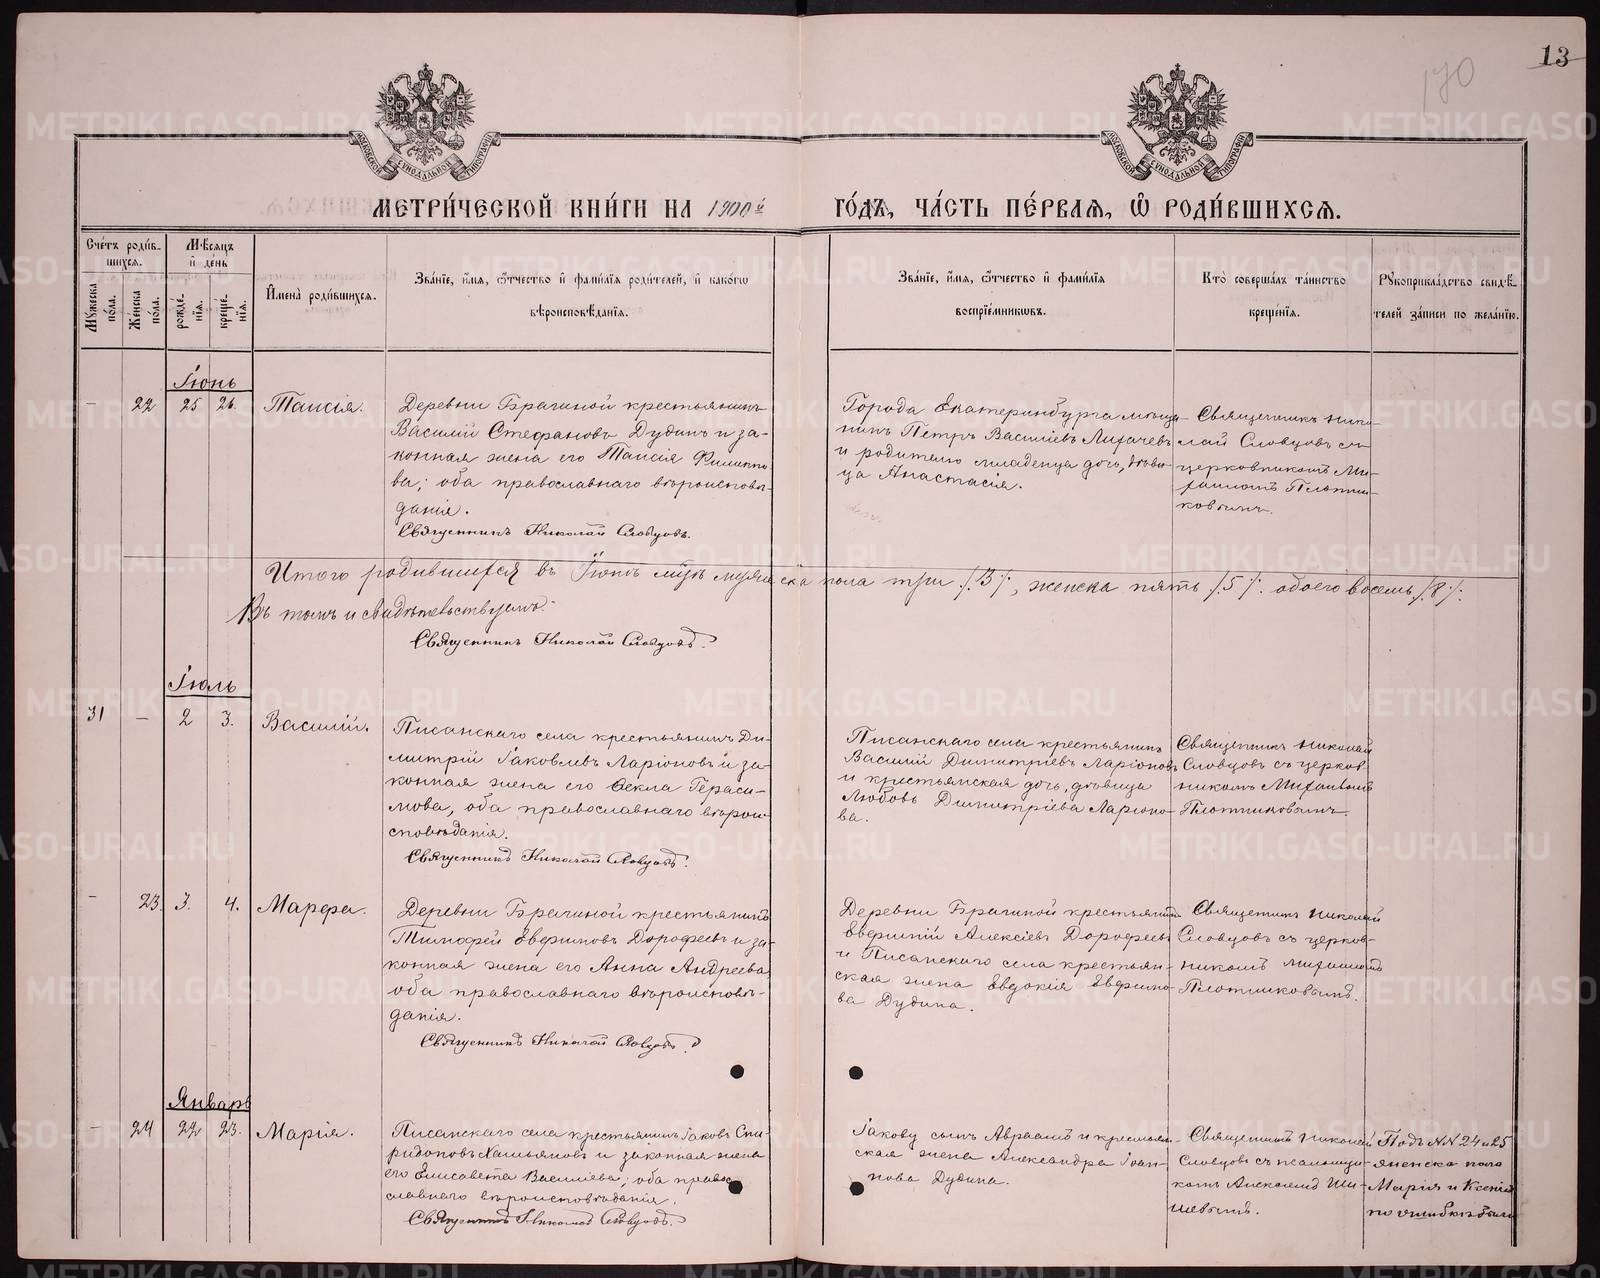 13
170
МОСКОВСКОЙ СѴНОДАЛЬНОЙ ТИПОГРАФІИ
МОСКОВСКОЙ СѴНОДАЛЬНОЙ ТИПОГРАФІИ
МЕТРИ́ЧЕСКОЙ КНИ́ГИ НА 1900й ГО́ДЪ, ЧА́СТЬ ПЕ́РВАЯ, Ѡ РОДИ́ВШИХСЯ.
Сче́тъ роди́в-
шихся.
Му́жеска по́ла.
Же́нска по́ла.
Мѣ́сяцъ
и де́нь
рожде́-
нїя.
креще́-
нїя.
И́мена̀ роди́вшихся.
Зва́нїе, и́мя, ѻ́тчество и фами́лїя роди́телей, и како́гѡ
вѣроисповѣ́данїя.
Зва́нїе, и́мя, ѻ́тчество и фами́лїя
воспрїе́мникѡвъ.
Кто̀ соверша́лъ та́инство
креще́нїя.
Рꙋкоприкла́дство свидѣ́-
телей за́писи по жела́нїю.
Іюнь
- 22 25 26. Таисія.
Деревни Брагиной крестьянинъ
Василій Стефановъ Дудинъ и за-
конная жена его Таисія Филиппо
ва; оба православнаго вѣроисповѣ-
данія.
Священникъ Николай Словцовъ.
Города Екатеринбурга мѣща-
нинъ Петръ Василіевъ Лихачевъ
и родителю младенца дочь, дѣви-
ца Анастасія.
Священникъ Нико-
лай Словцовъ съ
церковникомъ Ми-
хаиломъ Плотни-
ковымъ.
Итого родившихся въ Іюнѣ мцѣ мужеска пола три /.3/., женска пять /.5/. обоего восемь /.8/.
Въ томъ и свидѣтельствуемъ:
Священникъ Николай Словцовъ.
Іюль
31 - 2 3. Василій.
Писанскаго села крестьянинъ Ди-
митрій Іаковлевъ Ларіоновъ и за-
конная жена его Ѳекла Гераси-
мова, оба православнаго вѣрои-
сповѣданія.
Священникъ Николай Словцовъ.
Писанскаго села крестьянинъ
Василій Димитріевъ Ларіоновъ
и крестьянская дочь, дѣвица
Любовь Димитріева Ларіоно-
ва.
Священникъ Николай
Словцовъ съ церков-
никомъ Михаиломъ
Плотниковымъ.
- 23. 3. 4. Марѳа.
Деревни Брагиной крестьянинъ
Тимофей Евфимовъ Дорофеевъ и за-
конная жена его Анна Андреева
оба православнаго вѣроисповѣ-
данія.
Священникъ Николай Словцовъ.
Деревни Брагиной крестьянинъ
Евфимій Алексіевъ Дорофеевъ
и Писанскаго села крестьян-
ская жена Евдокія Евфимо-
ва Дудина.
Священникъ Николай
Словцовъ съ церков-
никомъ Михаиломъ
Плотниковымъ.
Январь
- 24 22 23. Марія.
Писанскаго села крестьянинъ Іаковъ Спи-
ридоновъ и законная жена
его Елисавета Василіева; оба право-
славнаго вѣроисповѣданія.
Священникъ Николай Словцовъ.
Іакову сынъ Авраамъ и крестьян-
ская жена Александра Іоан-
нова Дудина.
Священникъ Николай
Словцовъ съ псаломщи-
комъ Алексіемъ Ши-
шевымъ.
Подъ №№ 24 и 25
женска пола
Марія и Ксенія
по ошибкѣ были